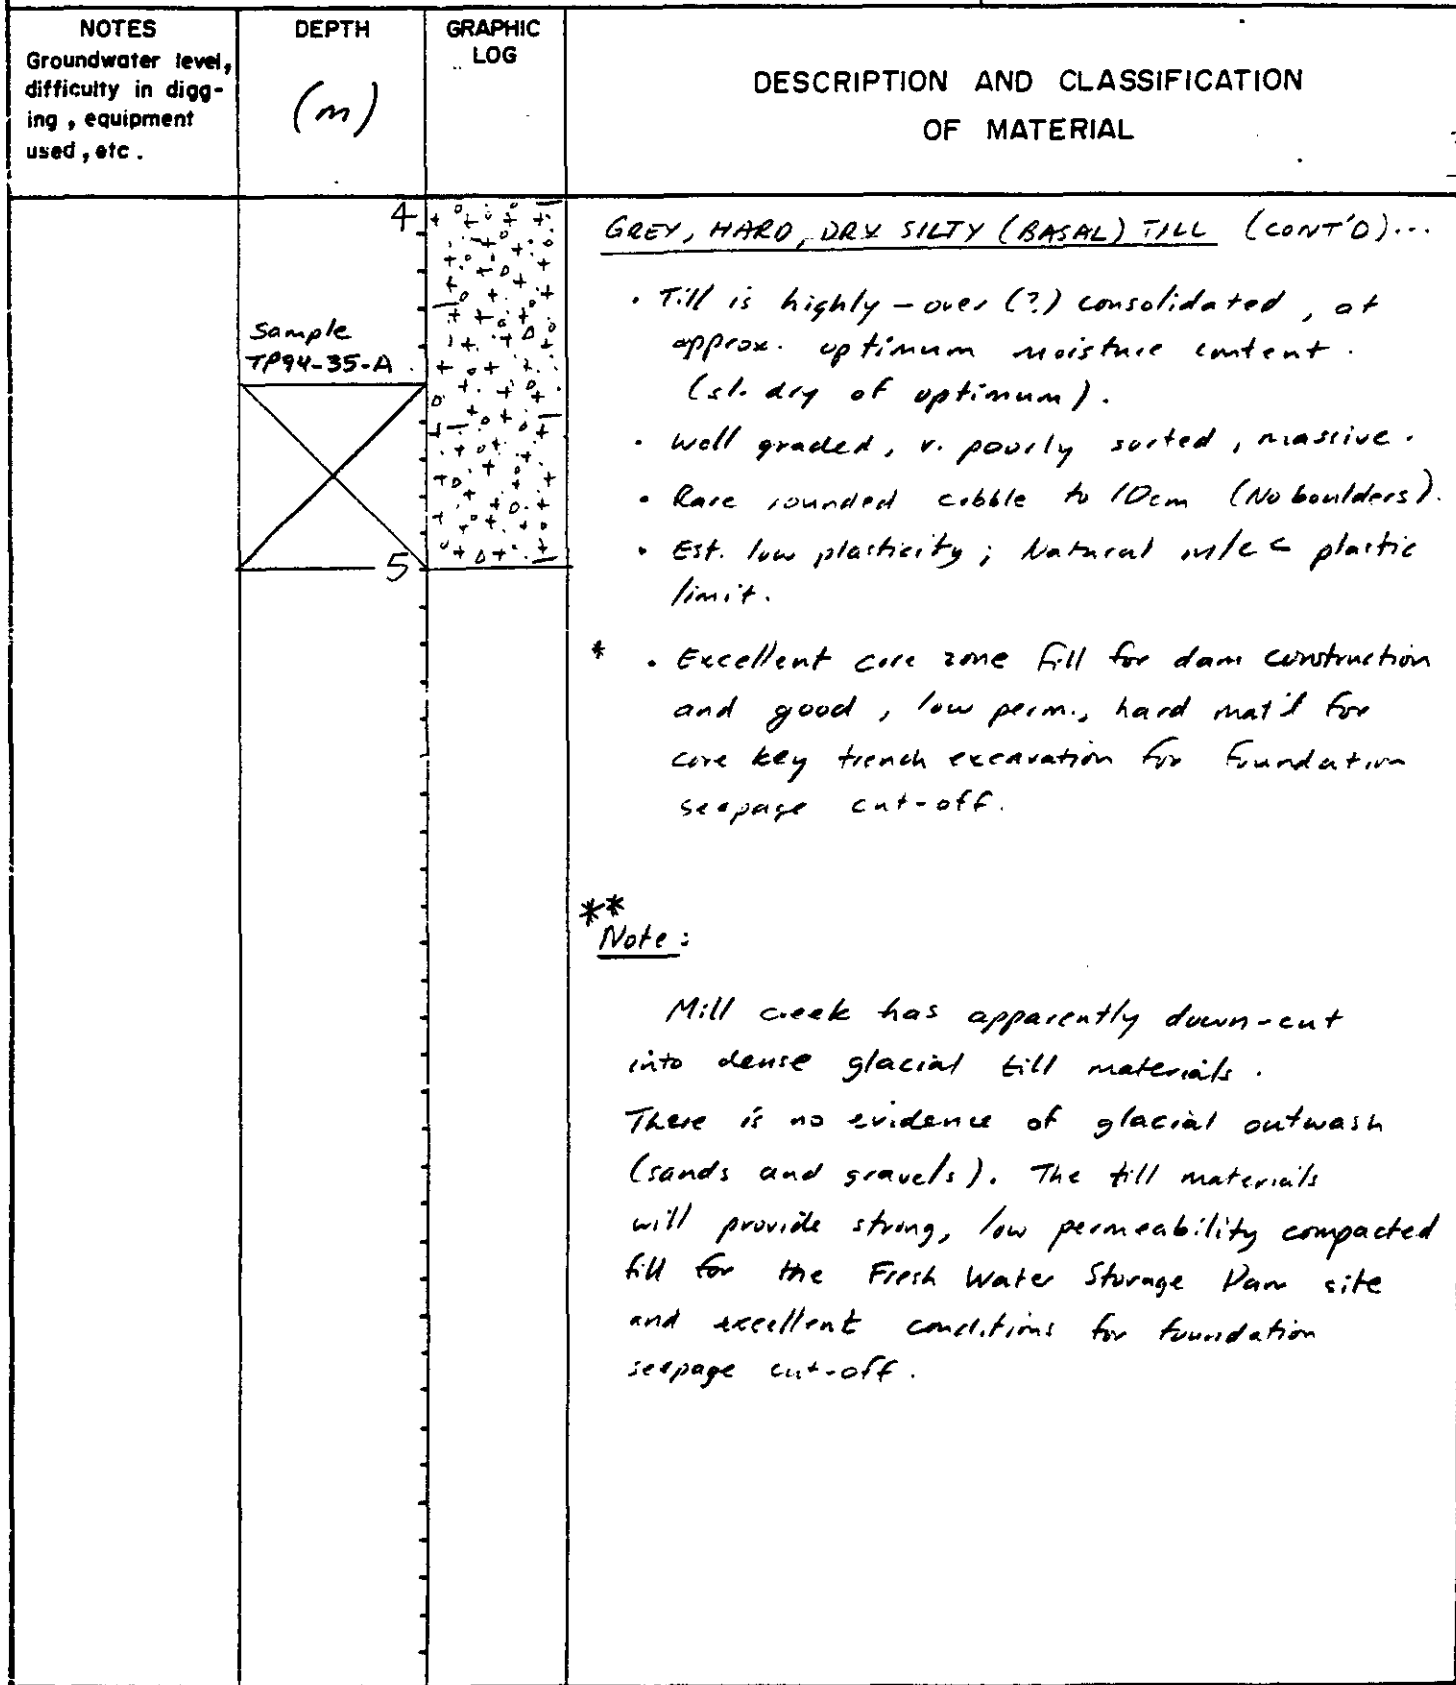 NOTES
Groundwater level,
difficulty in digg-
ing, equipment
used, etc.
DEPTH
(m)
GRAPHIC
LOG
DESCRIPTION AND CLASSIFICATION
OF MATERIAL
4
Sample
TP94-35-A
5
GREY, HARD, DRY SILTY (BASAL) TILL (CONT'D)...
• Till is highly-over (?) consolidated, at
approx. optimum moisture content.
(sl. dry of optimum).
• Well graded, v. poorly sorted, massive.
• Rare rounded cobble to 10cm (No boulders).
• Est. low plasticity; Natural m/c < plastic
limit.
* • Excellent core zone fill for dam construction
and good, low perm., hard mat'l for
core key trench excavation for foundation
seepage cut-off.
**
Note:
Mill creek has apparently down-cut
into dense glacial till materials.
There is no evidence of glacial outwash
(sands and gravels). The till materials
will provide strong, low permeability compacted
fill for the Fresh Water Storage Dam site
and excellent conditions for foundation
seepage cut-off.